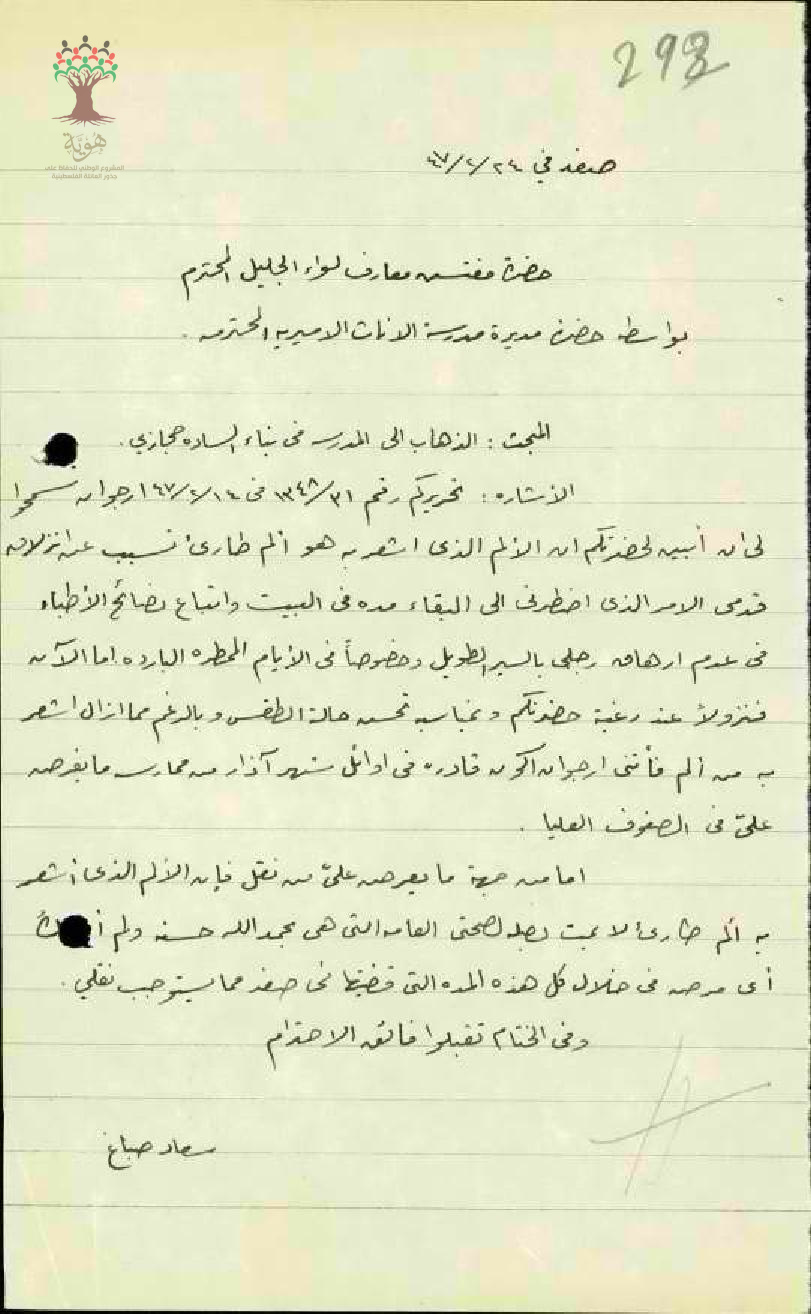 298
هُويَّة
المشروع الوطني للحفاظ على
جذور العائلة الفلسطينية
صفد في ٢٤/٢/٤٧
حضرة مفتش معارف لواء الجليل المحترم
بواسطة حضرة مديرة مدرسة الاناث الاميريه المحترمه .
المبحث : الذهاب الى المدرسه في بناء الساده حجازي .
الأشاره : تحريركم رقم ١٣٤٨/٣١ في ١٤/٢/٤٧ ارجو ان تسمحوا
لي ان أبين لحضرتكم ان الألم الذي اشعر به هو ألم طارئ تسبب عن انزلاق
قدمي الامر الذي اضطرني الى البقاء مده في البيت واتباع نصائح الأطباء
في عدم ارهاق رجلي بالسير الطويل وخصوصاً في الأيام الممطره البارده اما الآن
فنزولاً عند رغبة حضرتكم وبمناسبة تحسن حالة الطقس وبالرغم مما ازال اشعر
به من ألم فأنني ارجو ان اكون قادره في اوائل شهر آذار من ممارسة ما يفرض
عليّ في الصفوف العليا .
اما من جهة ما يعرض عليّ من نقل فإن الألم الذي أشعر
به ألم طارئ لا يمت بصله لصحتي العامه التي هي بحمد الله حسنه ولم
أي مرض في خلال كل هذه المده التي قضيتها في صفد مما يستوجب نقلي .
وفي الختام تقبلوا فائق الاحترام
سعاد صباغ